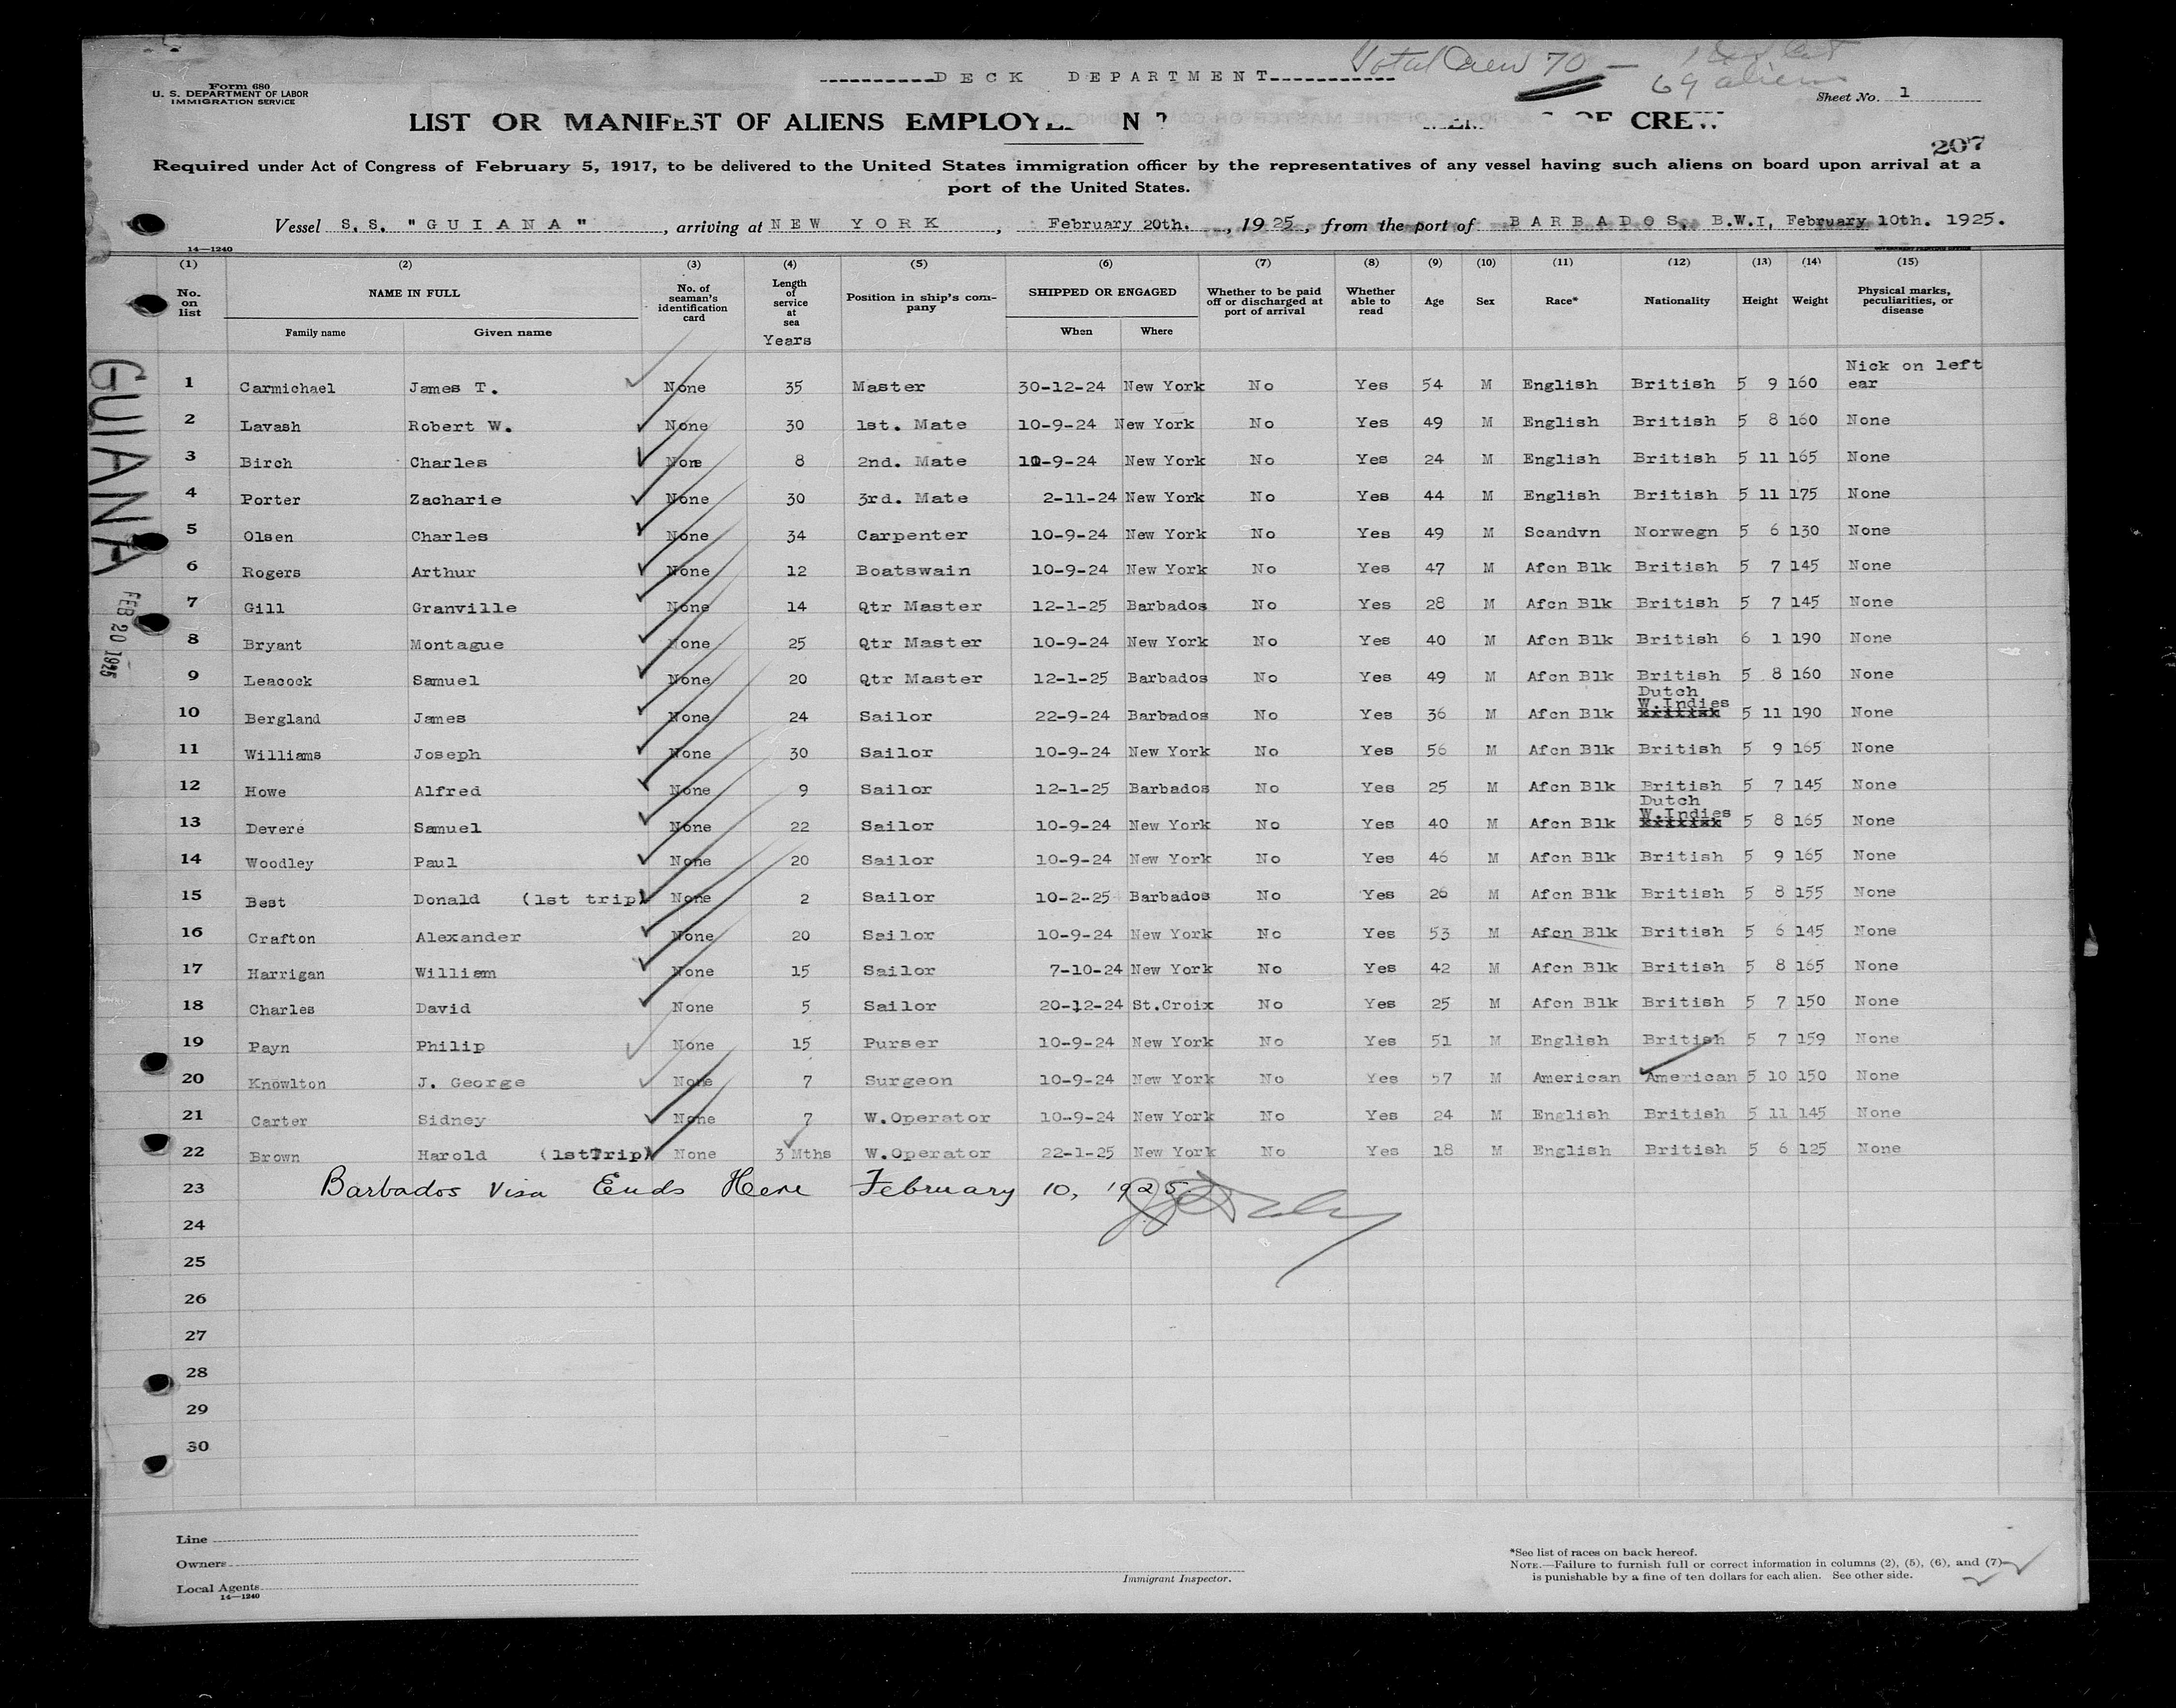 DECK DEPARTMENT
Total Crew 70 —
69 aliens
Form 680
U. S. DEPARTMENT OF LABOR
IMMIGRATION SERVICE
Sheet No. 1
LIST OR MANIFEST OF ALIENS EMPLOYE N OF CREW
207
Required under Act of Congress of February 5, 1917, to be delivered to the United States immigration officer by the representatives of any vessel having such aliens on board upon arrival at a
port of the United States.
Vessel S.S. "GUIANA", arriving at NEW YORK, February 20th., 1925, from the port of BARBADOS, B.W.I, February 10th. 1925.
14—1240
(1) (2) (3) (4) (5) (6) (7) (8) (9) (10) (11) (12) (13) (14) (15)
No. on list NAME IN FULL Family name Given name No. of seaman's identification card Length of service at sea Years Position in ship's company SHIPPED OR ENGAGED When Where Whether to be paid off or discharged at port of arrival Whether able to read Age Sex Race* Nationality Height Weight Physical marks, peculiarities, or disease
1 Carmichael James T. None 35 Master 30-12-24 New York No Yes 54 M English British 5 9 160 Nick on left ear
2 Lavash Robert W. None 30 1st. Mate 10-9-24 New York No Yes 49 M English British 5 8 160 None
3 Birch Charles None 8 2nd. Mate 10-9-24 New York No Yes 24 M English British 5 11 165 None
4 Porter Zacharie None 30 3rd. Mate 2-11-24 New York No Yes 44 M English British 5 11 175 None
5 Olsen Charles None 34 Carpenter 10-9-24 New York No Yes 49 M Scandvn Norwegn 5 6 130 None
6 Rogers Arthur None 12 Boatswain 10-9-24 New York No Yes 47 M Afcn Blk British 5 7 145 None
7 Gill Granville None 14 Qtr Master 12-1-25 Barbados No Yes 28 M Afcn Blk British 5 7 145 None
8 Bryant Montague None 25 Qtr Master 10-9-24 New York No Yes 40 M Afcn Blk British 6 1 190 None
9 Leacock Samuel None 20 Qtr Master 12-1-25 Barbados No Yes 49 M Afcn Blk British 5 8 160 None
10 Bergland James None 24 Sailor 22-9-24 Barbados No Yes 36 M Afcn Blk Dutch W.Indies 5 11 190 None
11 Williams Joseph None 30 Sailor 10-9-24 New York No Yes 56 M Afcn Blk British 5 9 165 None
12 Howe Alfred None 9 Sailor 12-1-25 Barbados No Yes 25 M Afcn Blk British 5 7 145 None
13 Devere Samuel None 22 Sailor 10-9-24 New York No Yes 40 M Afcn Blk Dutch W.Indies 5 8 165 None
14 Woodley Paul None 20 Sailor 10-9-24 New York No Yes 46 M Afcn Blk British 5 9 165 None
15 Best Donald (1st trip) None 2 Sailor 10-2-25 Barbados No Yes 26 M Afcn Blk British 5 8 155 None
16 Crafton Alexander None 20 Sailor 10-9-24 New York No Yes 53 M Afcn Blk British 5 6 145 None
17 Harrigan William None 15 Sailor 7-10-24 New York No Yes 42 M Afcn Blk British 5 8 165 None
18 Charles David None 5 Sailor 20-12-24 St.Croix No Yes 25 M Afcn Blk British 5 7 150 None
19 Payn Philip None 15 Purser 10-9-24 New York No Yes 51 M English British 5 7 159 None
20 Knowlton J. George None 7 Surgeon 10-9-24 New York No Yes 57 M American American 5 10 150 None
21 Carter Sidney None 7 W.Operator 10-9-24 New York No Yes 24 M English British 5 11 145 None
22 Brown Harold (1stTrip) None 3 Mths W.Operator 22-1-25 New York No Yes 18 M English British 5 6 125 None
23 Barbados Visa Ends Here February 10, 1925.
24
25
26
27
28
29
30
GUIANA
FEB 20 1925
Line
Owners
Local Agents
14—1240
Immigrant Inspector.
*See list of races on back hereof.
NOTE.—Failure to furnish full or correct information in columns (2), (5), (6), and (7)
is punishable by a fine of ten dollars for each alien. See other side.